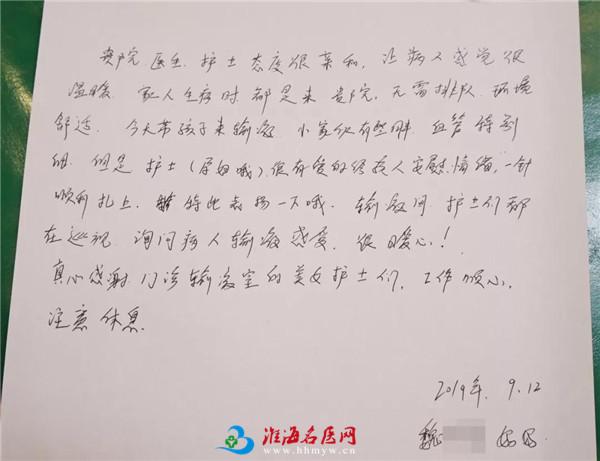 贵院医生、护士态度很亲和，让病人感觉很
温暖。家人生病时都是来贵院，无需排队，环境
舒适。今天带孩子来输液，小家伙有些胖，血管特别
细，但是护士（孕妇哦）很有爱的给孩人安慰情绪，一针
顺利扎上。特此表扬一下哦。输液间，护士们都
在巡视，询问病人输液感受，很暖心！
真心感谢门诊输液室的美女护士们，工作顺心，
注意休息
2019年.9.12
魏 妈妈
淮海名医网
www.hhmyw.cn